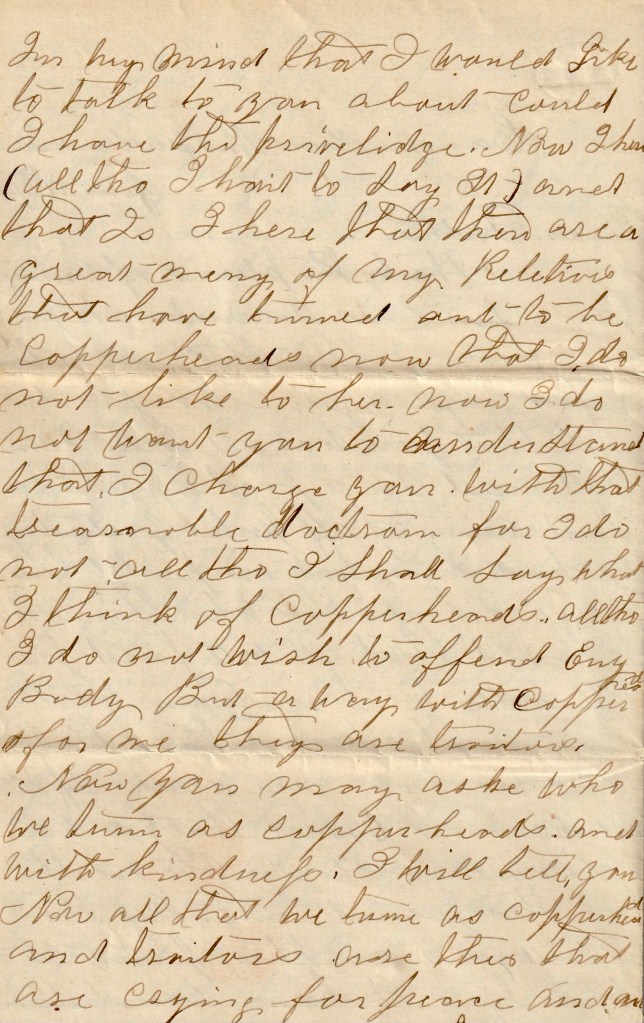 In my mind that I would Like
to talk to you about could
I have the privelidge. Now I hear
(alltho I hait to Say It) and
that Is I here that there are a
great meny of my Reletives
that have turned out to be
Copperheads now that I do
not like to her. now I do
not want you to understand
that, I charge you. with that
treasonable doctrom for I do
not, alltho I Shall Say what
I think of Copperheads. alltho
I do not wish to offend Eny
Body But a way with Copper
heds
for me they are traitors.
Now you may aske who
we turm as copperheads. and
with kindness. I will tell, you
Now all that we turme as copperhed
and traitors are thes that
are crying for peace and